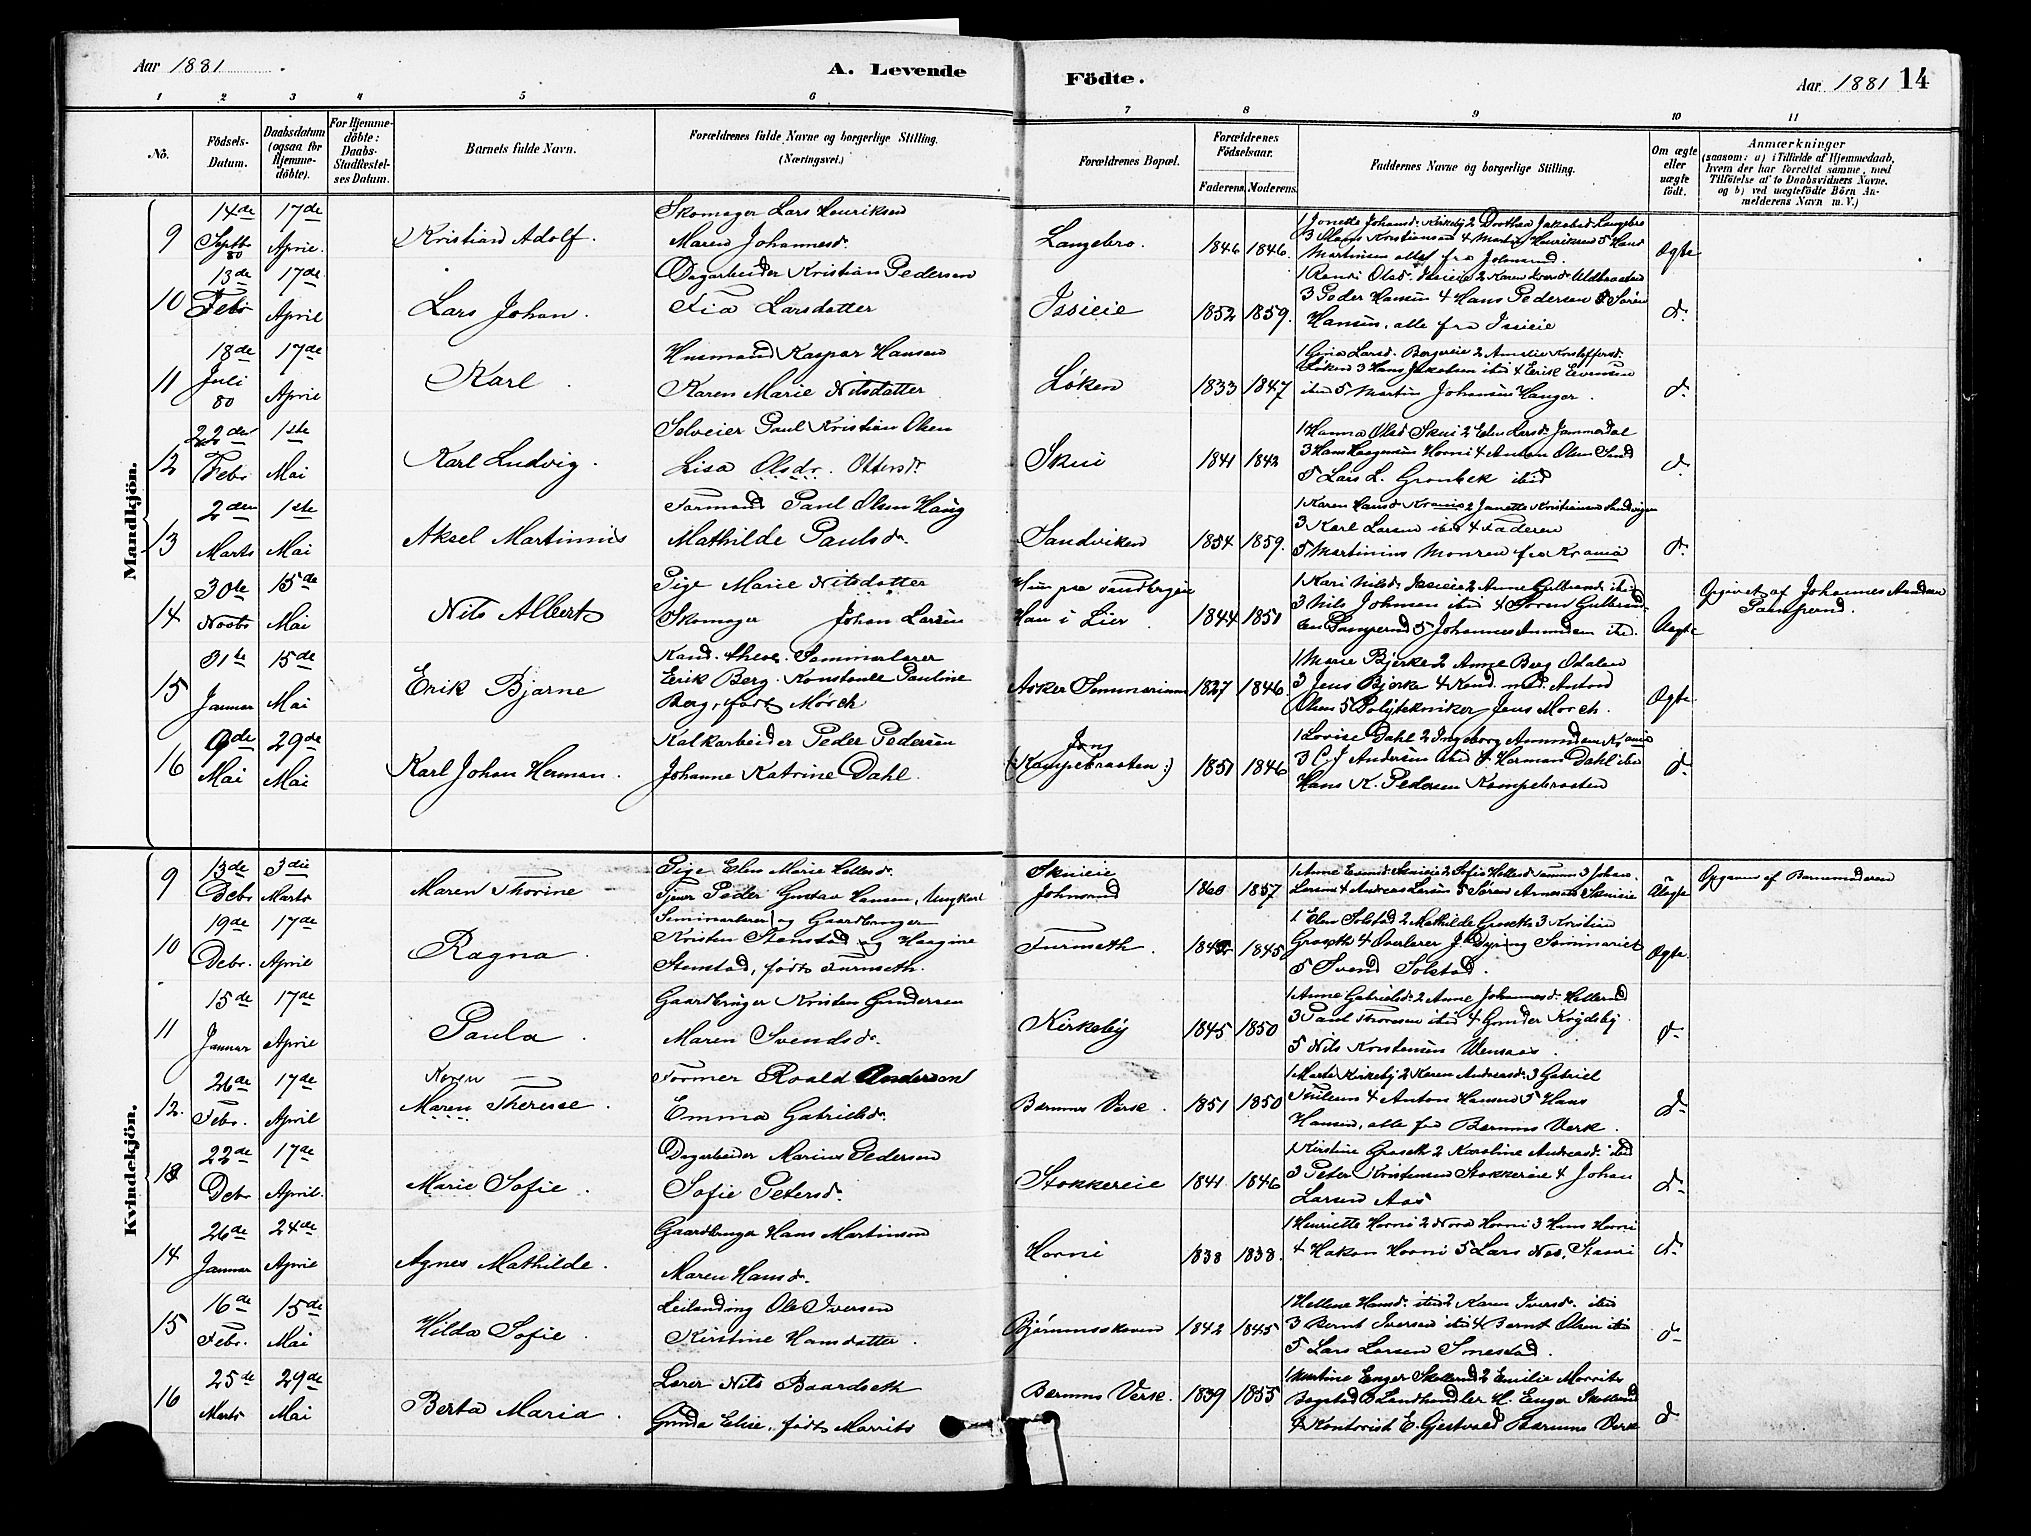 Aar 1881. A. Levende Födte. Aar 1881 14
1 2 3 4 5 6 7 8 9 10 11
No. Födsels-Datum. Daabsdatum (ogsaa for Hjemme-döbte). For Hjemme-döbte: Daabs-Stadfæstel-ses Datum. Barnets fulde Navn. Forældrenes fulde Navne og borgerlige Stilling. (Næringsvei.) Forældrenes Bopæl. Forældrenes Födselsaar. Faderens. Moderens. Faddernes Navne og borgerlige Stilling. Om ægte eller uægte födt. Anmærkninger (saasom: a) i Tilfælde af Hjemmedaab, hvem der har forrettet samme, med Tilföielse af to Daabsvidners Navne, og b) ved uægtefödte Börn An-melderens Navn m. V.)
Mandkjön.
9 14de Septbr 80 17de April. Kristian Adolf. Skomager Lars Henriksen
Maren Johannesd. Langebro. 1846 1846. 1 Jonette Johansd. Kirkeby 2 Dorthea Jakobsd. Langebro
3 Hans Kristiansen 4 Martin Henriksen 5 Hans
Martinsen alle fra Johnsrud. Ægte
10 13de Febr 17de April Lars Johan. Dagarbeider Kristian Pedersen
Tia Larsdatter Issieie 1852 1859. 1 Randi Olsd. Issieie 2 Karen
3 Peder Hansen 4 Hans Pedersen 5 Søren
Hansen, alle fra Issieie d.
11 18de Juli 80 17de April Karl. Husmand Kaspar Hansen
Karen Marie Nilsdatter Løken 1833 1847 1 Gina Larsd. Borgereie 2 Amalie Kristoffersd.
Løken 3 Hans Jakobsen ibid 4 Erik Evensen
ibid 5 Martin Johansen Hanger. d.
12 22den Febr 1ste Mai Karl Ludvig. Selveier Paul Kristian Olsen
Lisa Olsdr. Ottersdr Skui 1841 1842 1 Hanna Olsd Skui 2 Elen Larsd. Jammerdal
3 Hans Haagensen Horni 4 Anton Olsen Sand
5 Lars L. Grønbek ibid d.
13 2den Marts 1ste Mai Aksel Martinius Formand Paul Olsen Haug
Mathilde Paulsd. Sandviken 1854 1859. 1 Karen Hansd. Krania 2 Janette Kristiansen Sandvigen
3 Karl Larsen ibid 4 Faderen
5 Martinius Monsen fra Krania d.
14 30te Novbr 15de Mai Nils Albert Pige Marie Nilsdatter
Skomager Johan Larsen Hun paa Sandbergeie
Han i Lier 1844 1850 1 Kari Nilsd. Issieie 2 Anne Gulbrands. ibid
3 Nils Johnsen ibid 4 Søren Gulbrand-
sen Pamperud 5 Johannes Amundsen ibid. Uægte Opgivet af Johannes Amdsen
Pamperud.
15 31te Januar 15de Mai Erik Bjarne Kand. theol. Seminarlærer
Erik Berg. Konstanse Pauline
Berg, født Mørch Asker Seminarium 1827 1846 1 Marie Bjerke 2 Anne Berg Odalen
3 Jens Bjerke 4 Kand. med. Anton
Olsen 5 Polytekniker Jens Mørch. Ægte
16 9de Mai 29de Mai Karl Johan Herman. Kalkarbeider Peder Pedersen
Johanne Katrine Dahl. (Kampebraaten:) 1851 1846 1 Lovise Dahl 2 Ingeborg Amundsen Krania
3 C. J. Andersen ibid 4 Herman Dahl ibid
Hans K. Pedersen Kampebraaten d.
Kvindekjön.
9 13de Debr 3die Marts Maren Thorine Pige Elen Marie Hellesd.
Tjener Peder Gustav Hansen, Ungkarl Skuieie
Johnsrud 1860 1857 1 Anne Evensd. Skuieie 2 Sofie Hellesd. 3 Johan
Larsen 4 Andreas Larsen 5 Søren Arnesen Skuieie Uægte Opgiven af Barnemoderen
10 19de Debr. 17de April Ragna. Seminarlærer og Gaardbruger
Kristen Stenstad og Haagine
Stenstad, født Furuseth. Furuseth. 1845 1 Elen Solstad 2 Mathilde Groseth 3 Kristian
Groseth 4 Overlærer J. Dyring Seminariet
5 Svend Solstad. Ægte.
11 15de Januar 17de April Paula. Gaardbruger Kristen Gundersen
Maren Svendsd. Kirkeby 1845 1850 1 Anne Gabrielsd. 2 Anne Johannesd. Hellerud
3 Paul Thoresen ibid 4 Gunder Kirkeby
5 Nils Kristensen d.
12. 26de Febr. 17de April Karen
Maren Therese. Former Roald Andersen
Emma Gabrielsd. Bærums Verk. 1851 1850 1 Marte Kirkeby 2 Karen Andreasd. 3 Gabriel
4 Anton Hansen 5 Hans
Hansen, alle fra Bærums Verk. d.
13 22de Debr 17de April. Marie Sofie. Dagarbeider Marius Pedersen
Sofie Petersd. Stokkereie 1841 1846 1 Kirstine Groseth 2 Karoline Andreasd. ibid
3 Peter Kristensen Stokkereie 4 Johan
Larsen Aas d.
14 26de Januar 24de April Agnes Mathilde. Gaardbruger Hans Martinsen
Maren Hansd. Horni 1838 1838. 1 Henriette Horni 2 Nora Horni 3 Hans Horni
4 Hakon Horni 5 Lars Nes, d.
15 16de Febr. 15de Mai Hilda Sofie. Leilending Ole Iversen
Kirstine Hansdatter. Bjørumsskoven 1842 1845 1 Hellene Hansd. ibid 2 Karen Iversd. ibid
3 Bernt Iversen ibid 4 Bernt Olsen ibid
5 Lars Larsen Smestad. d.
16 25de Marts 29de Mai Berta Maria. Lærer Nils Baardseth
Gunda Elise, født Morrits Bærums Verk. 1839 1855 1 Martine Enger Skollerud 2 Emilie Morrits
Bogstad 3 Landhandler H. Enger Skollerud
4 Kontorist E. Gjestvold Bærums Verk d.